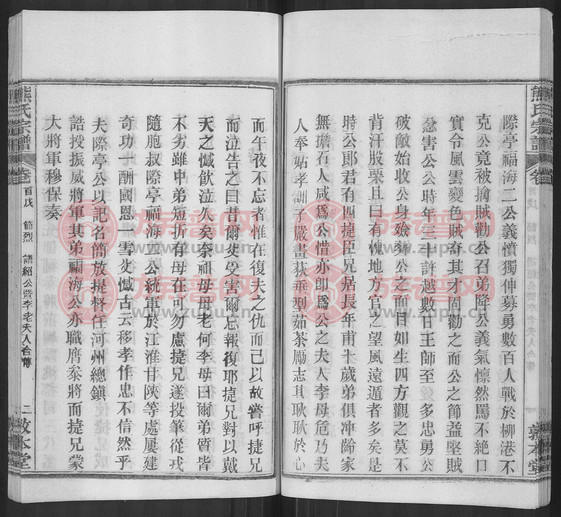 熊氏宗譜
卷
敦本堂
際亭福海二公義憤獨伸募勇數百人戰於柳港不
克公竟被擒賊勸公召弟降公義氣懔然駡不絕口
實令風雲變色賊奇其才固勸之而公之節益堅賊
忿害公公時年三十許越數日王師至多忠勇公
破敵始收公身殮葬之面目如生四方觀之莫不
背汗股栗且曰有愧地方官之望風遠遁者多矣是
時公郎君有四捷臣兄居長年甫十歲弟俱冲齡家
無擔石人咸為公惜亦即為公之夫人李母危乃夫
人則事姑孝訓子嚴畫荻垂型茹茶勵志其耿耿於心
而午夜不忘者惟在復夫之仇而已以故嘗呼捷兄
而泣告之曰昔爾父受害爾忘報復耶捷兄對以戴
天之憾飲泣久矣奈祖母母老何李母曰爾弟皆
不劣雖中弟短折有母在可勿慮捷兄遂投筆從戎
隨胞叔際亭福海二公統軍於江淮甘陝等處屢建
奇功一酬國恩一雪父憾古云移孝作忠不信然乎
夫際亭公以記名簡放提督任河州總鎮
誥授振威將軍其弟福海公亦職膺叅將而捷兄蒙
大將軍穆保奏
熊氏宗譜
卷
首戊 節烈 詣紹公暨李老夫人合傳
二
敦本堂